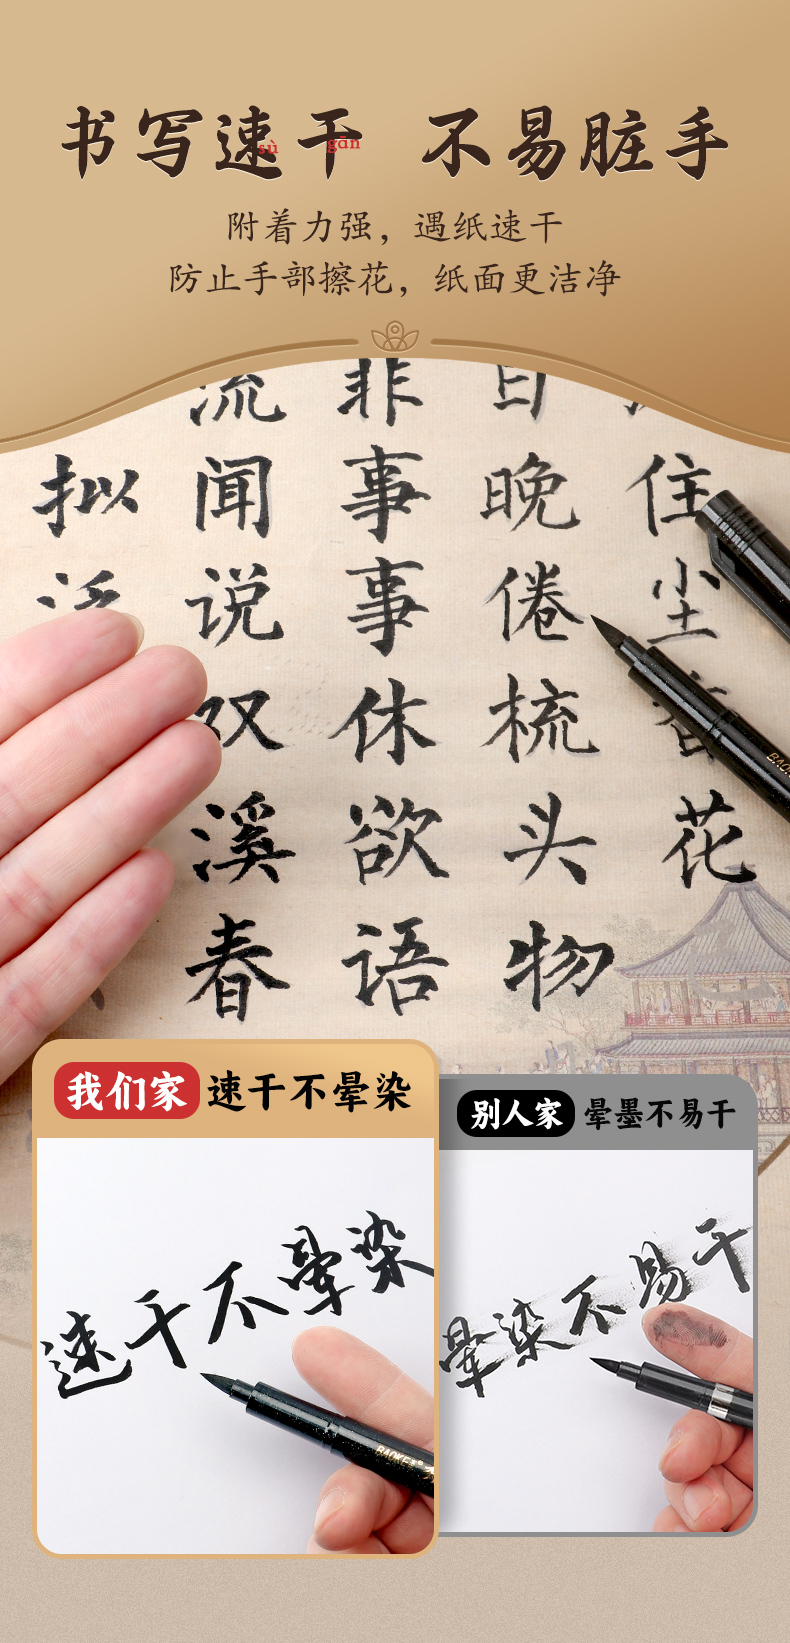 书写速干 不易脏手
sù gān
附着力强，遇纸速干
防止手部擦花，纸面更洁净
住尘花
日晚倦梳头物
非事事休欲语
流闻说双溪春
拟泛
我们家 速干不晕染
速干不晕染
BAOKE
别人家 晕墨不易干
晕染不易干